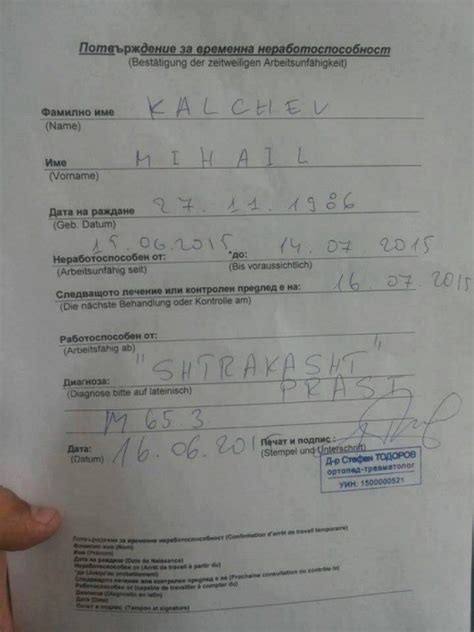 Потвърждение за временна неработоспособност
(Bestätigung der zeitweiligen Arbeitsunfähigkeit)
Фамилно име KALCHEV
(Name)
Име MIHAIL
(Vorname)
Дата на раждане 27.11.1986
(Geb. Datum)
15.06.2015 14.07.2015
Неработоспособен от: *до:
(Arbeitsunfähig seit) (Bis voraussichtlich)
Следващото лечение или контролен преглед е на: 16.07.2015
(Die nächste Behandlung oder Kontrolle am)
Работоспособен от:
(Arbeitsfähig ab)
"SHTRAKASHT"
Диагноза: PRAST
(Diagnose bitte auf lateinisch)
M 65.3
Дата: 16.06.2015 Печат и подпис:
(Datum) (Stempel und Unterschrift)
Д-р Стефан ТОДОРОВ
ортопед-травматолог
УИН: 1500000521
Потвърждение за временна неработоспособност (Confirmation d'arrêt de travail temporaire)
Фамилно име (Nom)
Име (Prénom)
Дата на раждане (Date de Naissance)
Неработоспособен от (Arrêt de travail à partir du)
*до (Jusqu'au probablement)
Следващото лечение или контролен преглед е на (Prochaine consultation ou contrôle le)
Работоспособен от (capable de travailler à compter du)
Диагноза (Diagnostic en latin)
Дата (Date)
Печат и подпис (Tampon et signature)